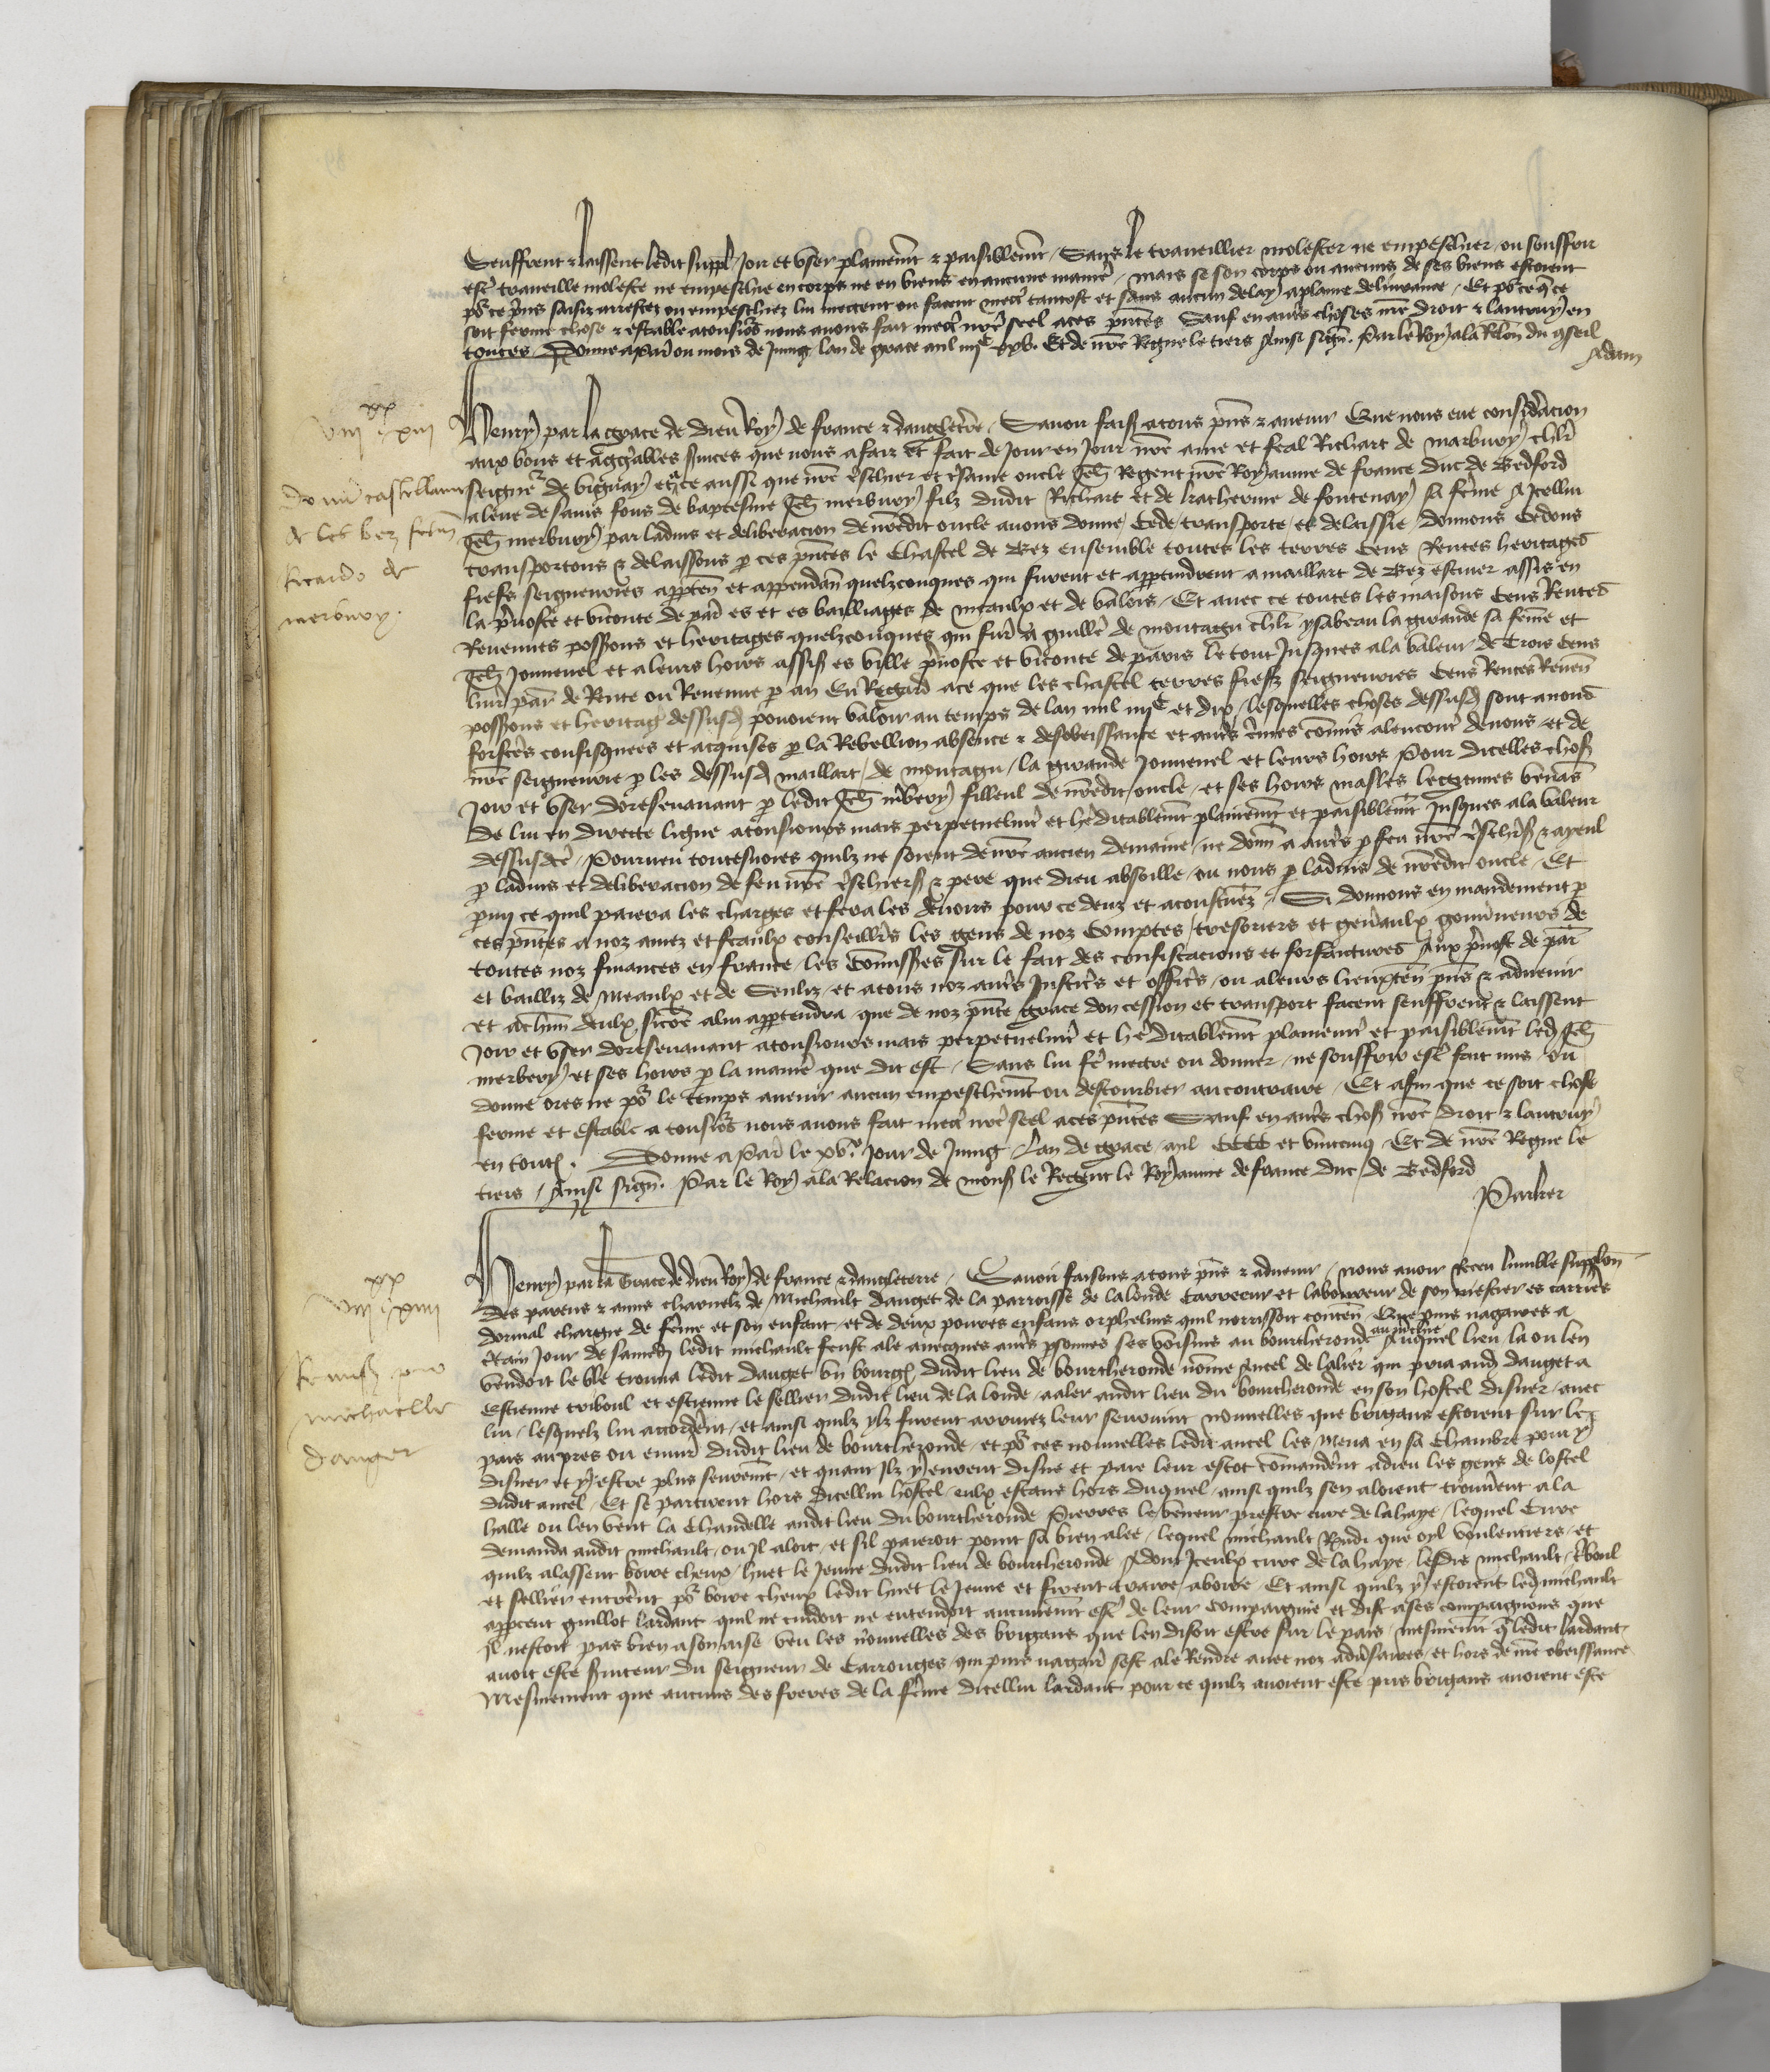 Seuffrent et laissent ledit suppl Joir et user plainemt et paisiblemt Sans le traveillier molester ne empeschier ou souffrir
estre traveille moleste ne empeschie en corps ne en biens en aucune maniere Mais se son corps ou aucuns de ses biens estoient
pour ce prins saisiz arrestez ou empeschiez lui mectent ou facent mectre tantost et sans aucun delay a plaine delivrance Et pour ce que ce
soit ferme chose et estable a tousiours nous avons fait mectre nre seel a ces pntes Sauf en autres choses nre droit et lautruy en
toutes Donne a Paris ou mois de Juing lan de grace mil iiijc xxv. Et de nre Regne le tiers Ainsi sign. Par le Roy a la Relon du conseil
Adam
xx
viij xiij
Henry par la grace de dieu Roy de france et dangleterre Savoir fais a tous pns et avenir Que nous eue consideracion
aux bons et aggreables services que nous a faiz et fait de jour en jour nre ame et feal Richart de Marbury chlr
Donum castellanie
de les bez
Ricardo de
merbury.
seigneur de vignay et ce aussi que nre treschier et tresame oncle Jeh Regent nre Royaume de france duc de Bedford
a leve de sains fons de baptesme Jeh merbury filz dudit Richart et de katherine de fontenay sa feme A Icellui
Jeh merbury par ladvis et deliberacion de nredit oncle avons donne cede transporte et delaissie donnons cedons
transportons et delaissons par ces pntes le Chastel de Bez ensemble toutes les terres cens Rentes heritages
fiefs seigneuries apparten et appendan quelzconques qui furent et appartindrent a maillart de Bez escuier assis en
la prevoste et viconte de paris es et es bailliages de meaulx et de valois Et avec ce toutes les maisons cens Rentes
Revenues possessions et heritages quelzconques qui furent a guille de montagu chlr ysabeau la grande sa feme et
Jeh Jouvenel et a leurs hoirs assis es ville prevoste et viconte de paris le tout Jusques a la valeur de Trois cens
livres par de Rente ou Revenue par an En Regard a ce que les chastel terres fiefz seigneuries cens Rentes Reven
possessions et heritages dessusd povoient valoir au temps de lan mil iiijc et dix lesquelles choses dessusd sont a nous
forfaites confisquees et acquises par la Rebellion absence et desobeissance et autres crimes comis alencontre de nous et de
nre seigneurie par les dessusd maillart de montagu la grande Jouvenel et leurs hoirs Pour dicelles choses
Joir et user doresenavant par ledit Jeh merbury filleul de nredit oncle et ses hoirs masles legitimes venans
de lui en directe ligne a tousiours mais perpetuelmt et hereditablemt plainemt et paisiblemt Jusques a la valeur
dessusdce Pourveu toutesvoies quilz ne soient de nre ancien demaine ne donn a autres par feu nre treschiers et ayeul
par ladvis et deliberacion de feu nre treschiers et pere que dieu absoille ou nous par ladvis de nredit oncle Et
parmi ce quil paiera les charges et fera les devoirs pour ce deuz et acoustumez Si donnons en mandement par
ces pntes a noz amez et feaulx conseillers les gens de noz comptes tresoriers et generaulx gouverneurs de
toutes noz finances en france les Comissaires sur le fait des confiscacions et forfaictures Aux prevost de paris
et bailliz de Meaulx et de Senliz et a tous noz autres Justiciers et officiers ou a leurs lieuxten pns et advenir
et a chun deulx sicome a lui appartendra que de noz pnte grace don cession et transport facent seuffrent et laissent
Joir et user doresenavant a tousiours mais perpetuelmt et hereditablemt plainemt et paisiblemt led Jeh
merbery et ses hoirs par la maniere que dit est Sans lui fe mectre ou donner ne souffrir estre fait mis ou
donne ores ne pour le temps avenir aucun empeschemt ou destourbier au contraire Et afin que ce soit chose
ferme et estable a tousiours nous avons fait mectre nre seel a ces pntes Sauf en autres choses nre droit et lautruy
en toutes. Donne a Paris le xve. Jour de Juing Lan de grace mil CCCC et vintcinq Et de nre Regne le
tiers Ainsi sign. Par le Roy a la Relacion de mons le Regent le Royaume de france duc de Bedford
Parker
xx
viij xiiij
Remiss pro
michaelle
danget
Henry par la Grace de dieu Roy de france et dangleterre Savoir faisons a tous pns et advenir nous avoir Receu lumble supplon
des parens et amis charnelz de Michault danget de la parroisse de la londe Carreeur et laboureur de son mestier es carrieres
dorival chargie de feme et son enfant et de deux povres enfans orphelins quil norrissoit conten Que puis nagaires a
certain Jour de samedi ledit michault feust ale avecques autres personnes ses voisins au bourtheronde au marchie Auquel lieu la ou len
vendoit le ble trouva ledit danget un bourgois dudit lieu de bourtheronde nome Ancel de lalier qui pria aud danget a
Estienne triboul et estienne le sellier dudit lieu de la londe a aler audit lieu du bourtheronde en son hostel disner avec
lui lesquelz lui accorderent et ainsi quilz ylz furent arrivez leur seurvint nouvelles que brigans estoient sur le
pais aupres ou envir dudit lieu de bourtheronde et pour ces nouvelles ledit ancel les Mena en sa Chambre pour y
disner et y estre plus seuremt et quant Ilz y eurent disne et paie leur escot comanderent a dieu les gens de lostel
dudit ancel Et se partirent hors dicellui hostel eulx estans hors duquel ainsi quilz sen aloient trouverent a la
halle ou len vent la Chandelle audit lieu du bourtheronde Pierres le veneur prestre cure de lahaye lequel Cure
demanda audit michault ou Il aloit et sil paieroit point sa bien alee lequel michault Respondi que oyl voulentiers et
quilz alassent boire cheux huet le Jeune dudit lieu de bourtheronde Adont Iceulx cure de la haye lesdis michault triboul
et sellier entrerent pour boire cheux ledit huet le Jeune et firent traire a boire Et ainsi quilz y estoient led michault
apparceut guillot lardant quil ne cuidoit ne entendoit aucunemt estre de leur compaignie et dist a ses compaignons que
Il nestoit pas bien a son aise veu les nouvelles des brigans que len disoit estre sur le pais mesmemt que ledit lardant
avoit este serviteur du seigneur de Carrouges qui puis nagaires sest ale Rendre avec noz adversaires et hors de nre obeissance
Mesmement que aucuns des freres de la feme dicellui lardant pour ce quilz avoient este pris brigans avoient este